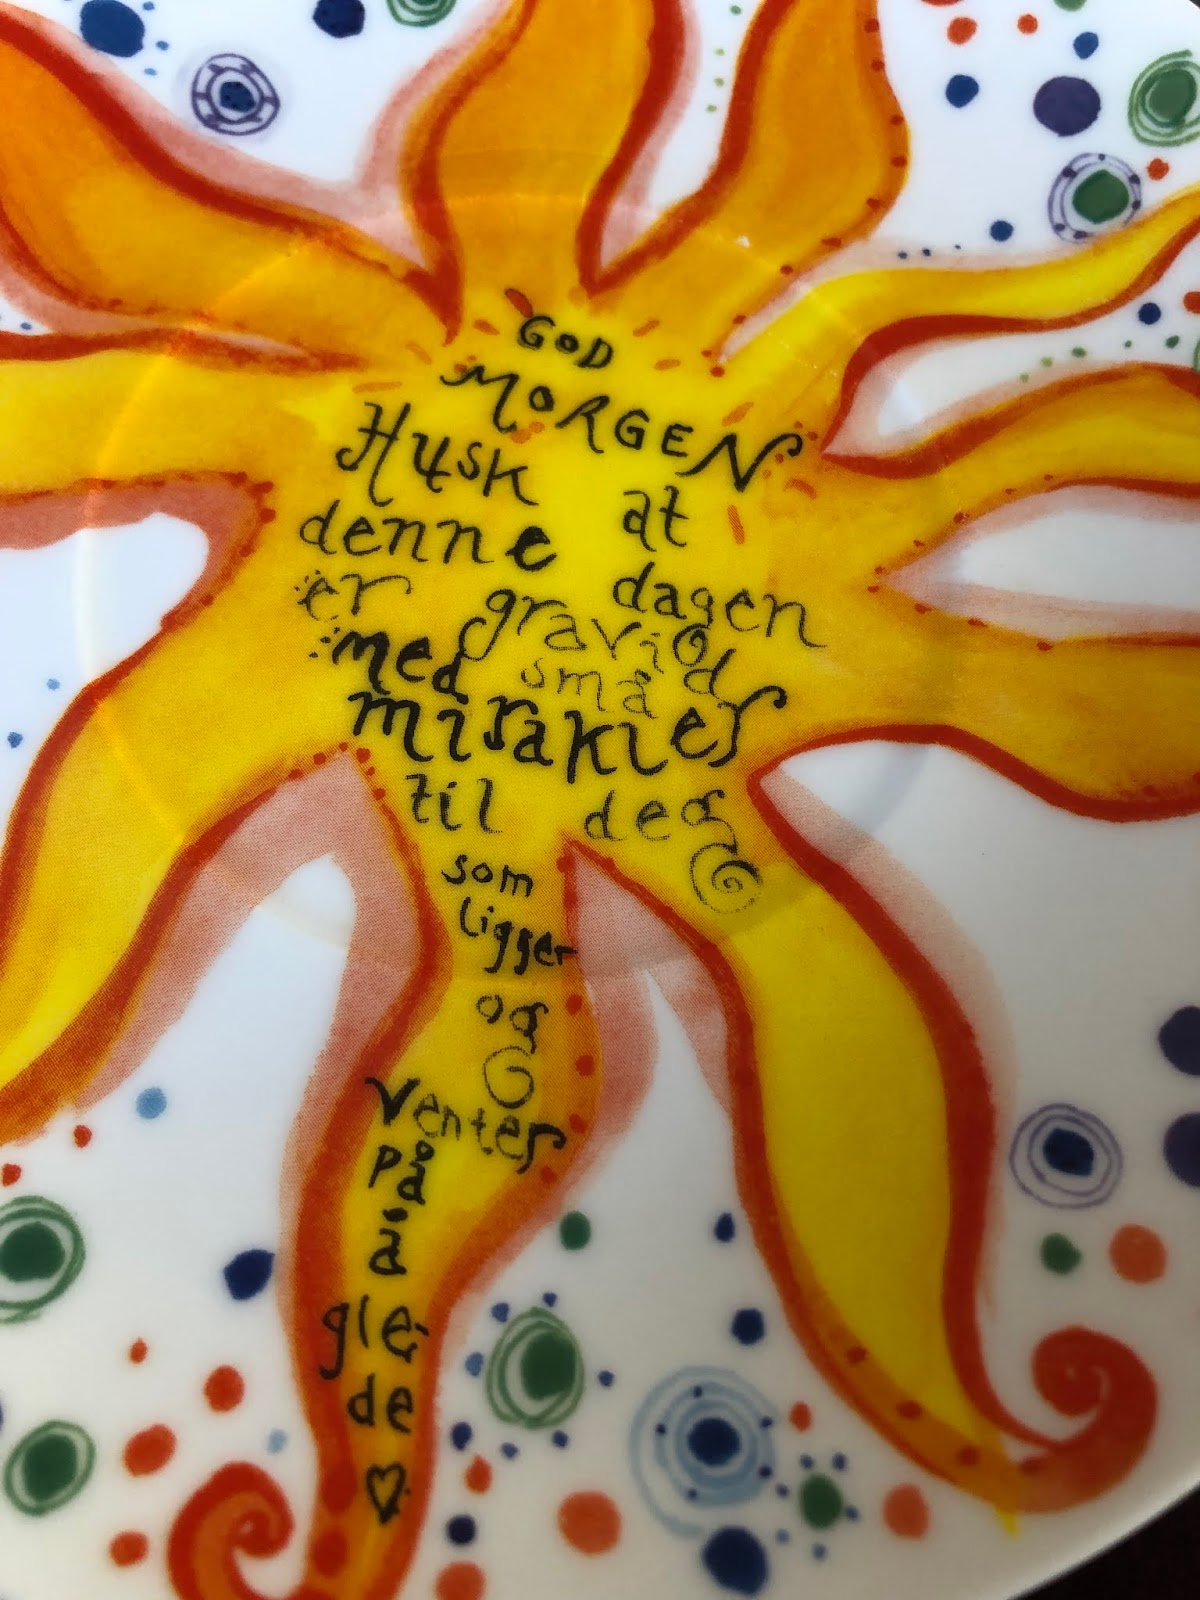 GOD
MORGEN
Husk at
denne dagen
er gravid
med små
mirakler
til deg
som
ligger
og
venter
på
å
gle-
de ♡